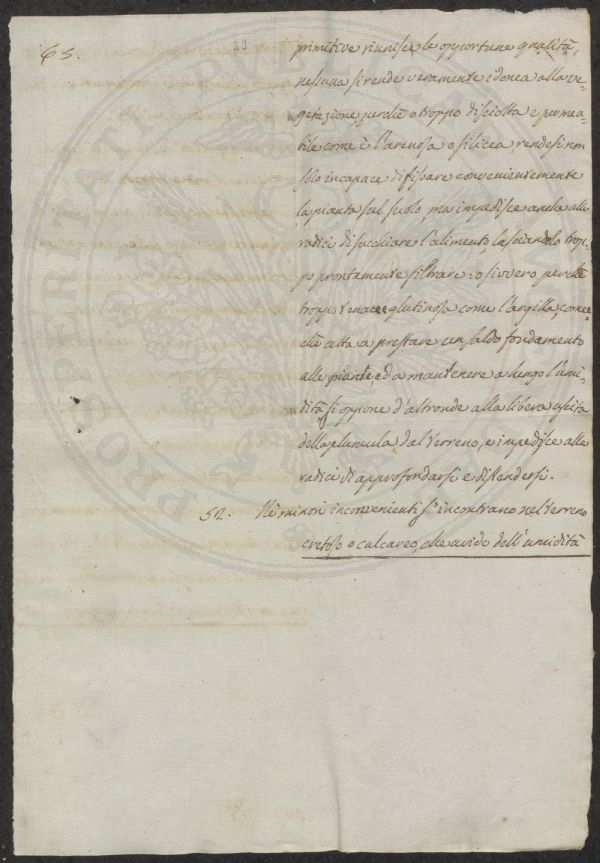 65.
33
primitive riunisce le opportune qualità,
nessuna si rende veramente idonea alla ve-
getazione perchè o troppo disciolta e permea-
bile come è l'arenosa o silicea rendesi non
solo incapace di fissare convenientemente
la pianta sul suolo, ma impedisce anche alle
radici di succhiare l'alimento, lasciandolo trop-
po prontamente filtrare: o sivvero perchè
troppo tenace e glutinosa come l'argilla, come
chè atta a prestare un saldo fondamento
alle piante, ed a mantenere a lungo l'umi-
dità si oppone d'altronde alla libera uscita
della plumula dal terreno, e impedisce alle
radici di approfondarsi e distendersi.
52. Nè minori inconvenienti s'incontrano nel terreno
cretoso o calcareo, che avido dell'umidità
PROSPERITATI PVBLICAE